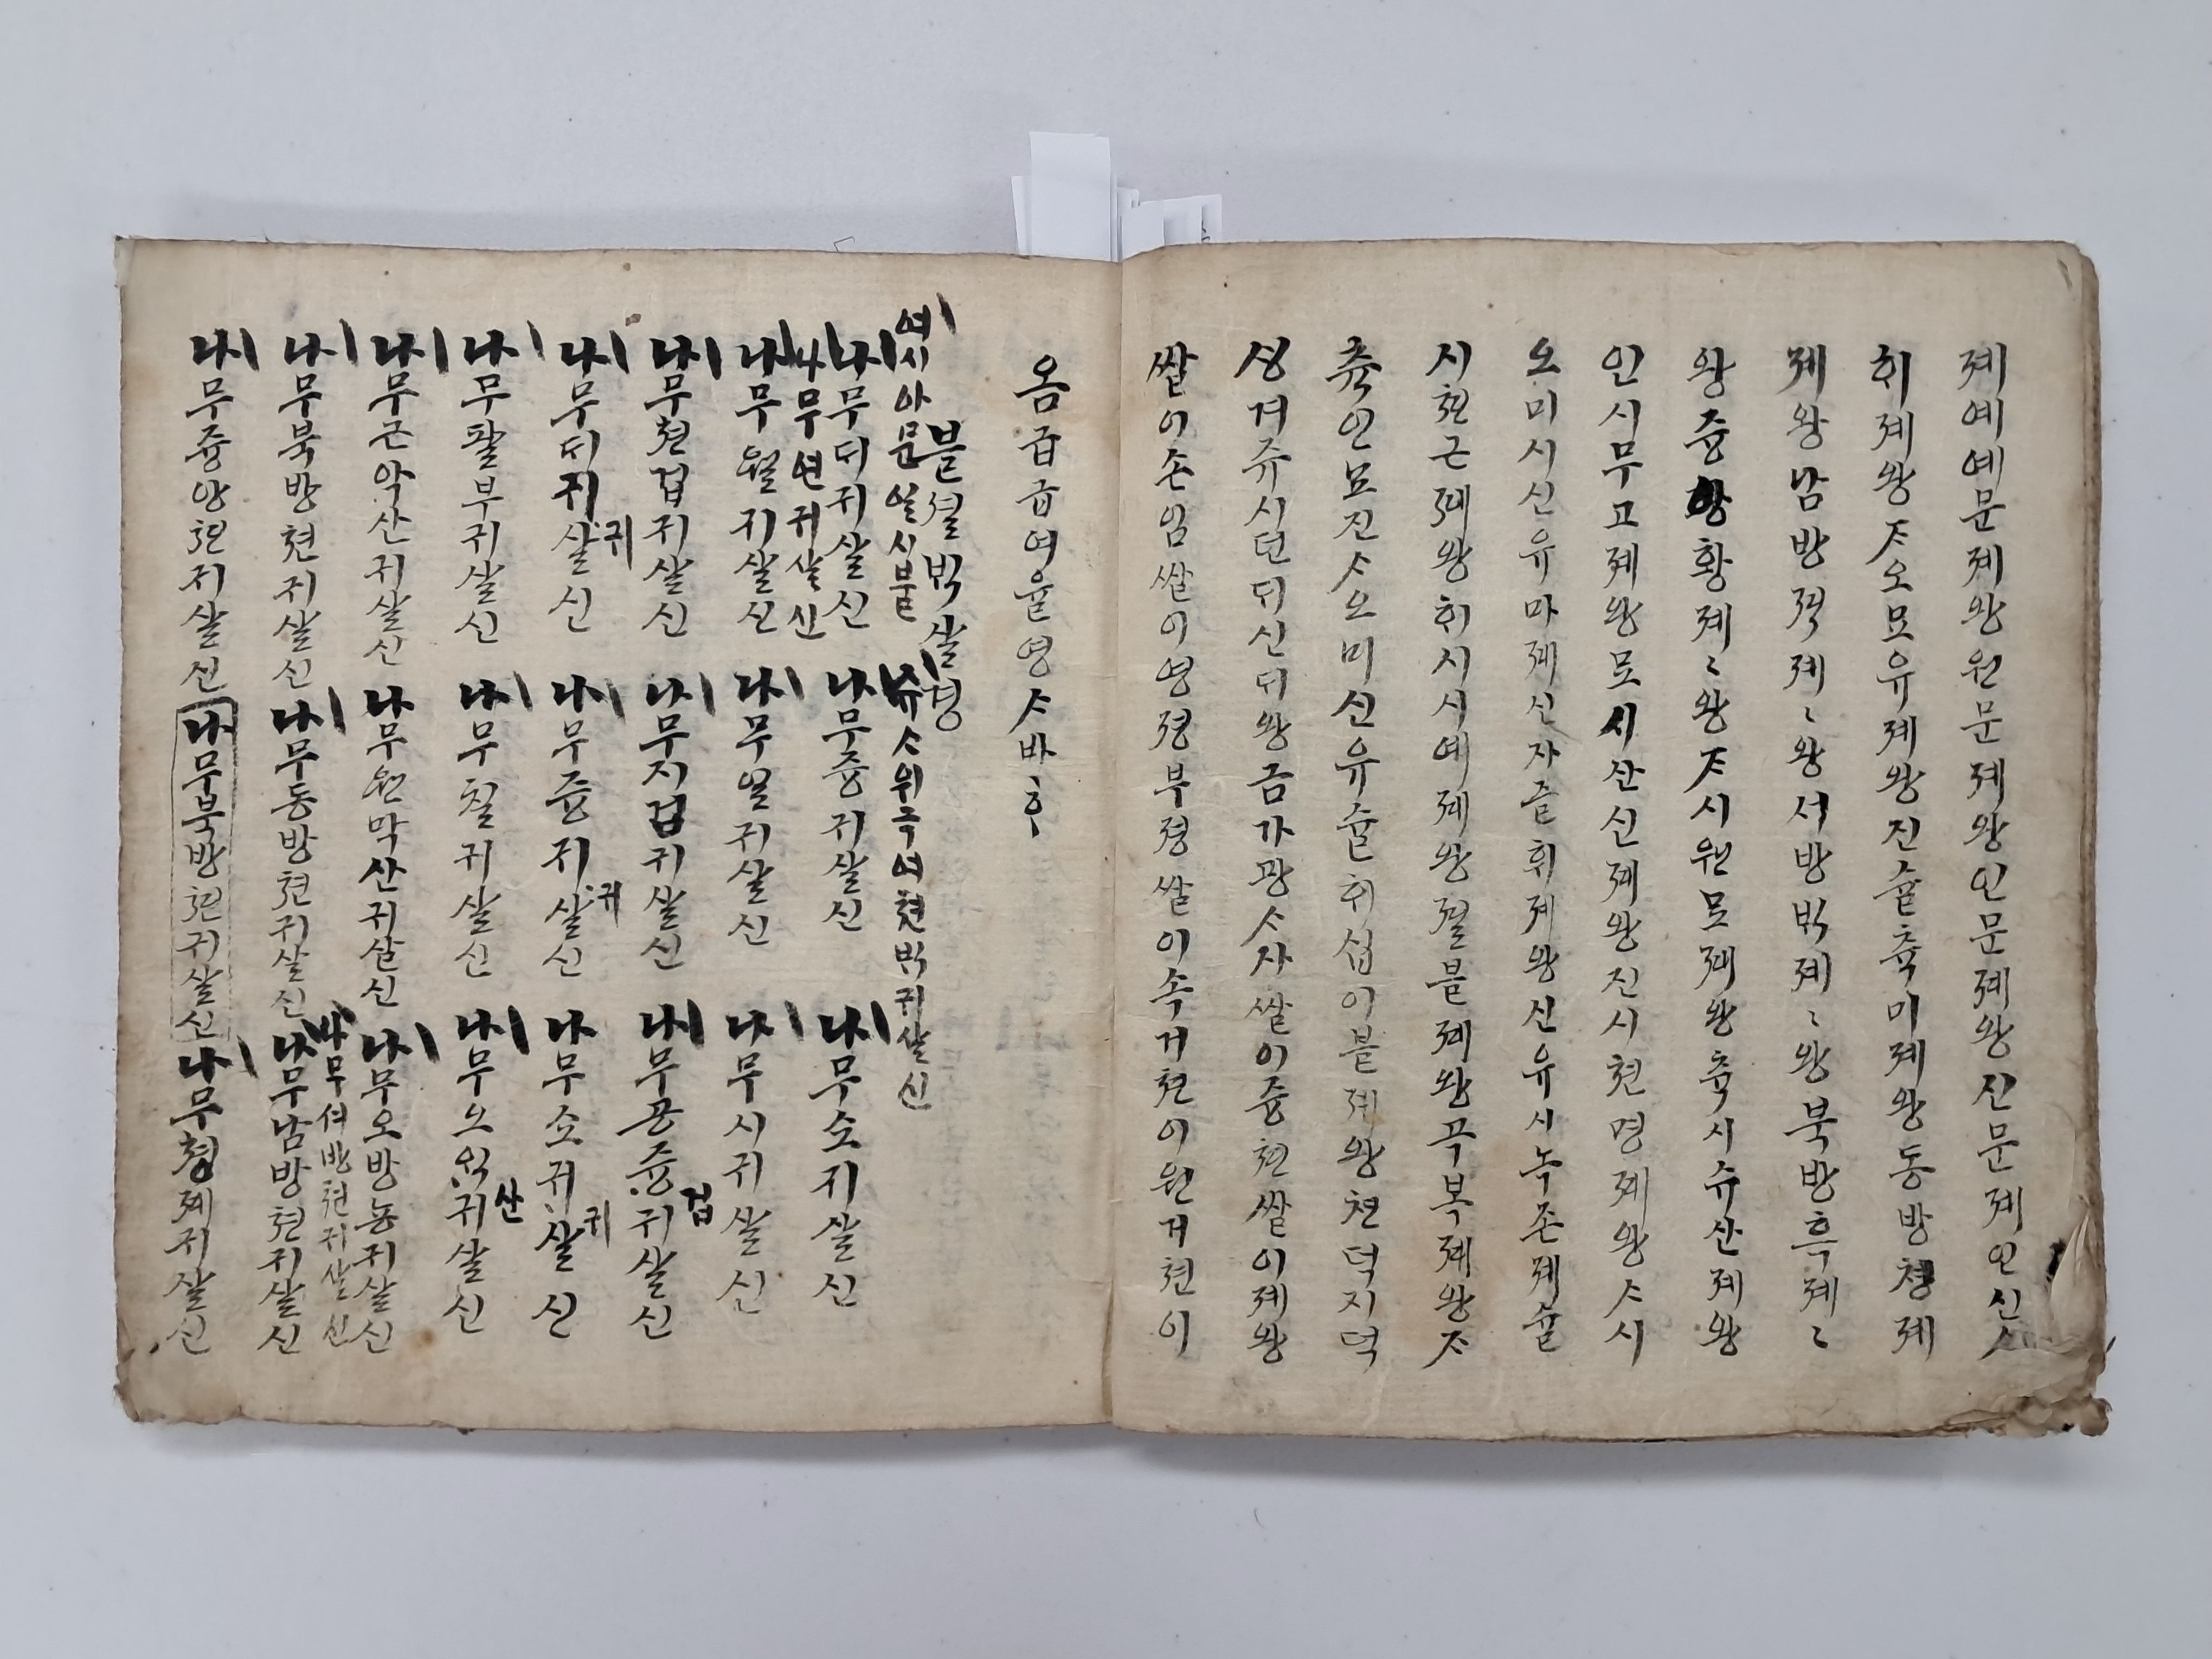 졔예예문졔왕원문졔왕인문졔왕신문졔인신ᄉᆞ
휘졔왕ᄌᆞ오묘유졔왕진슐츅미졔왕동방쳥졔
졔왕남방젹졔〻왕서방ᄇᆡᆨ졔〻왕북방흑졔〻
왕즁황황졔〻왕ᄌᆞ시원묘졔왕츅시슈산졔왕
인시무고졔왕묘시산신졔왕진시현명졔왕ᄉᆞ시
오미시신유마졔신자즐휘졔왕신유시녹존졔슐
시현근졔왕휘시서예졔왕졀블졔왕곡복졔왕ᄌᆞ
츅인묘진ᄉᆞ오미신유슐휘섭이블졔왕쳔덕지덕
싱겨쥬시던ᄃᆡ신ᄃᆡ왕금가광ᄉᆞ자쌀이즁쳔쌀이졔왕
쌀이존임쌀이영졍부졍쌀이속거쳔이원거쳔이
옴급급여율영ᄉᆞ바ᄒᆞ
블셜ᄇᆡᆨ살경
여시아문일시불 슈ᄉᆞ위국여쳔ᄇᆡᆨ귀살신
나무ᄃᆡ귀살신 나무즁귀살신 나무소귀살신
나무연귀살신
나무월귀살신 나무일귀살신 나무시귀살신
나무쳔겁귀살신 나무지겁귀살신 나무공즁귀살신 겁
나무ᄃᆡ귀살신 귀 나무즁귀살신 귀 나무소귀살신 귀
나무팔부귀살신 나무칠귀살신 나무오악귀살신 산
나무근악산귀살신 나무원막산귀살신 나무오방농귀살신
나무셔방쳔귀살신
나무북방쳔귀살신 나무동방쳔귀살신 나무남방쳔귀살신
나무즁앙쳔귀살신 나무북방쳔귀살신 나무쳥졔귀살신